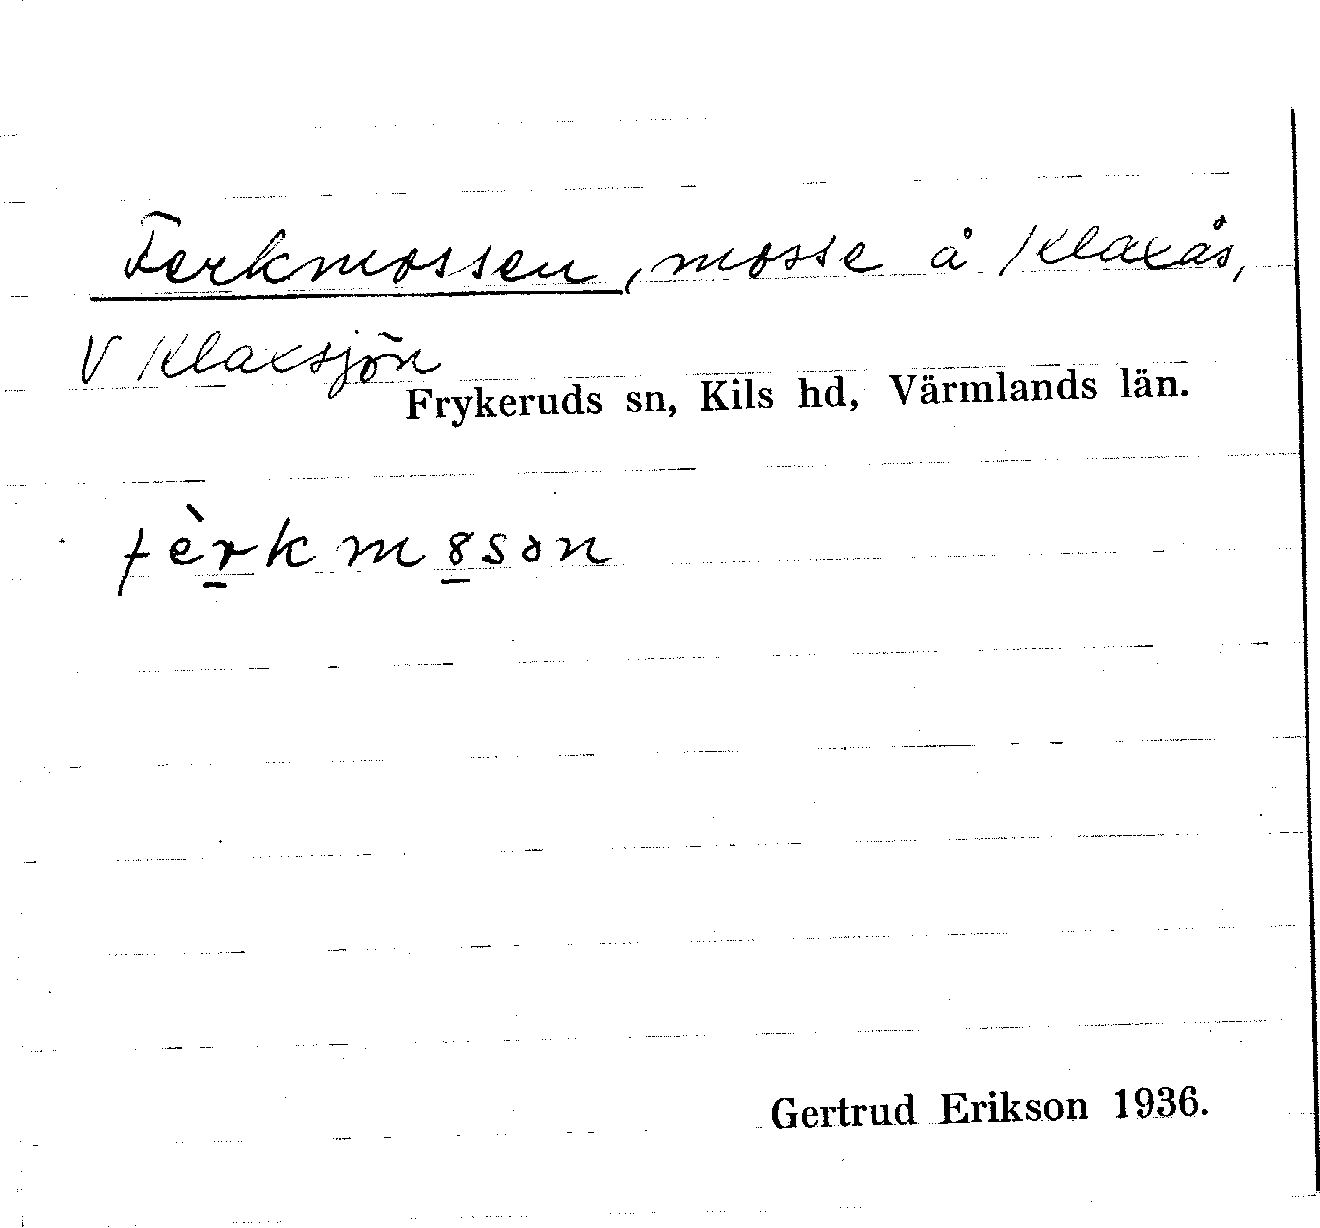 Ferkmossen, mosse å Klaxås,
V Klaxsjön
Frykeruds sn, Kils hd, Värmlands län.
fèr̲km8̲sən
Gertrud Erikson 1936.